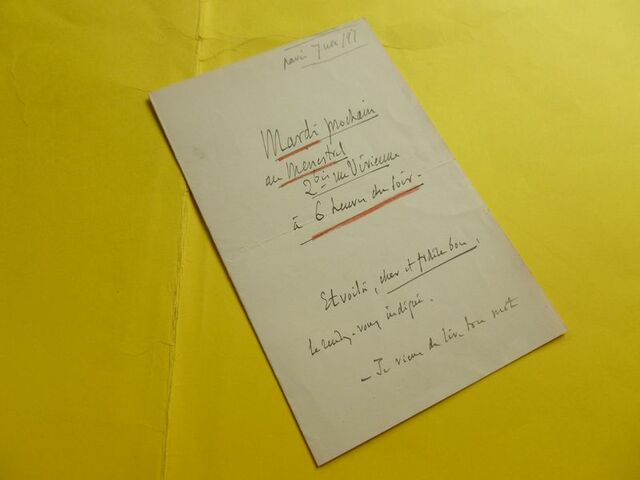 Paris 7 nov/97
Mardi prochain
au Ménestrel
2 bis rue Vivienne
à 6 heures du soir -
Et voilà, cher et fidèle bon,
le rendez-vous indiqué.
- Je viens de lire ton mot